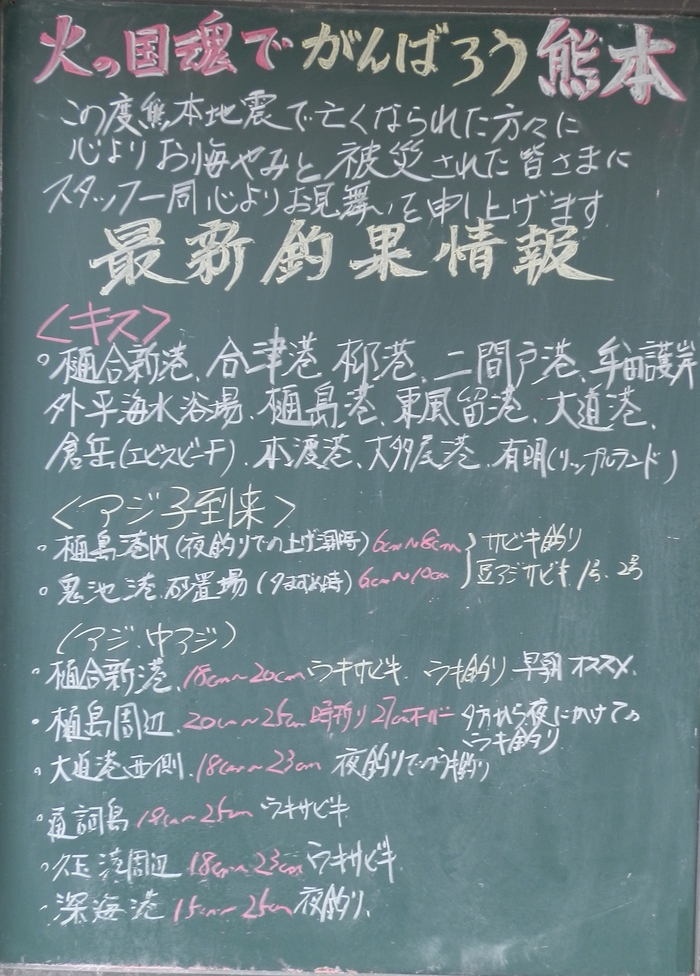 火の国魂でがんばろう熊本
この度熊本地震で亡くなられた方々に
心よりお悔やみと被災された皆さまに
スタッフ一同心よりお見舞いを申し上げます
最新釣果情報
<キス>
・樋合新港、合津港、柳港、二間戸港、牟田護岸
外平海水浴場、樋島港、東風留港、大道港、
倉岳(エビスビーチ)、本渡港、大多尾港、有明(リップルランド)
<アジ子到来>
・樋島港内(夜釣りでの上げ潮時)6cm~8cm}サビキ釣り
・鬼池港砂置場(夕まずめ時)6cm~10cm 豆アジサビキ1号、2号
(アジ、中アジ)
・樋合新港、18cm~20cmウキサビキ、ウキ釣り早朝オススメ、
・樋島周辺、20cm~25cm時折り27cmオーバー夕方から夜にかけての
ウキ釣り
・大道港西側、18cm~23cm 夜釣りでのウキ釣り
・通詞島18cm~25cm ウキサビキ
・久玉港周辺18cm~23cmウキサビキ
・深海港15cm~25cm夜釣り、